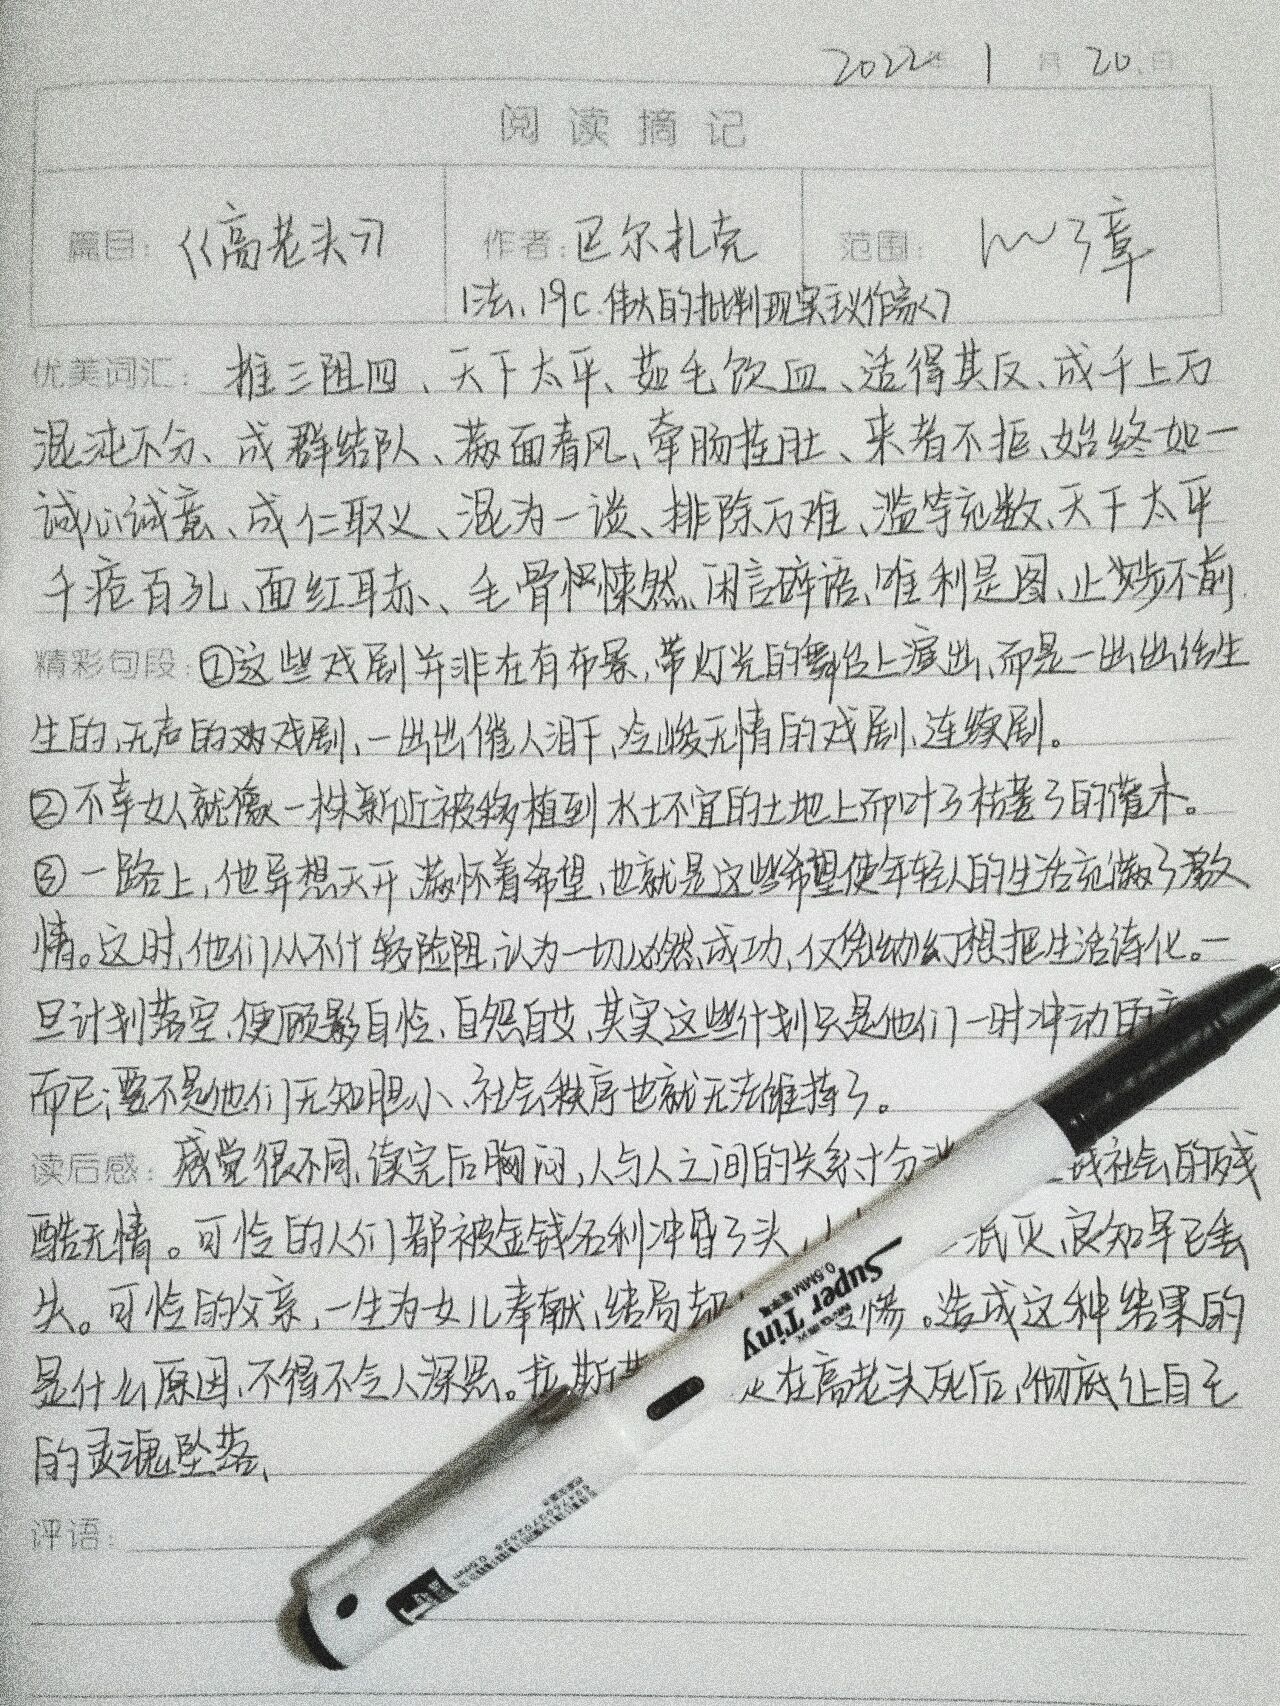 2022年 1月 20日
阅读摘记
篇目：《高老头》 作者：巴尔扎克 范围：1~3章
(法、19C.伟大的批判现实主义作家)
优美词汇：推三阻四、天下太平、茹毛饮血、适得其反、成千上万
混沌不分、成群结队、满面春风、牵肠挂肚、来者不拒、始终如一
诚心诚意、成仁取义、混为一谈、排除万难、滥竽充数、天下太平
千疮百孔、面红耳赤、毛骨悚然、闲言碎语、唯利是图、止步不前.
精彩句段：①这些戏剧并非在有布景，带灯光的舞台上演出，而是一出出活生
生的，无声的戏剧，一出出催人泪下，冷峻无情的戏剧，连续剧。
②不幸女人就像一株新近被移植到水土不宜的土地上而叶子枯萎了的灌木。
③一路上，他异想天开，满怀着希望，也就是这些希望使年轻人的生活充满了激
情。这时，他们从不计较险阻，认为一切必然成功，仅凭幻想把生活诗化。一
旦计划落空，便顾影自怜，自怨自艾，其实这些计划只是他们一时冲动的
而已；要不是他们无知胆小、社会秩序也就无法维持了。
读后感：感觉很不同，读完后胸闷，人与人之间的关系十分 社会的残
酷无情。可怜的人们都被金钱名利冲昏了头， 泯灭，良知早已丢
失。可怜的父亲，一生为女儿奉献，结局却 惨。造成这种结果的
是什么原因，不得不令人深思。拉斯 在高老头死后，彻底让自己
的灵魂坠落、
评语：
Super Tiny
0.5MM